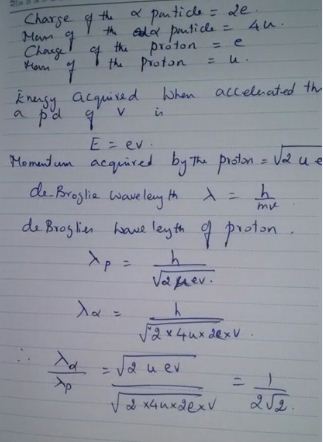 Charge of the α particle = 2e.
Mass of the α particle = 4u.
Charge of the proton = e
Mass of the proton = u.
Energy acquired when accelerated th
a pd of V is
E = ev.
Momentum acquired by the proton = √2 u e
de-Broglie wavelength λ = h/mv
de Broglies wave length of proton.
λp = h/√2 u ev.
λα = h/√2 × 4u × 2e × V.
∴ λα/λp = √2 u ev/√2 × 4u × 2e × V = 1/2√2.